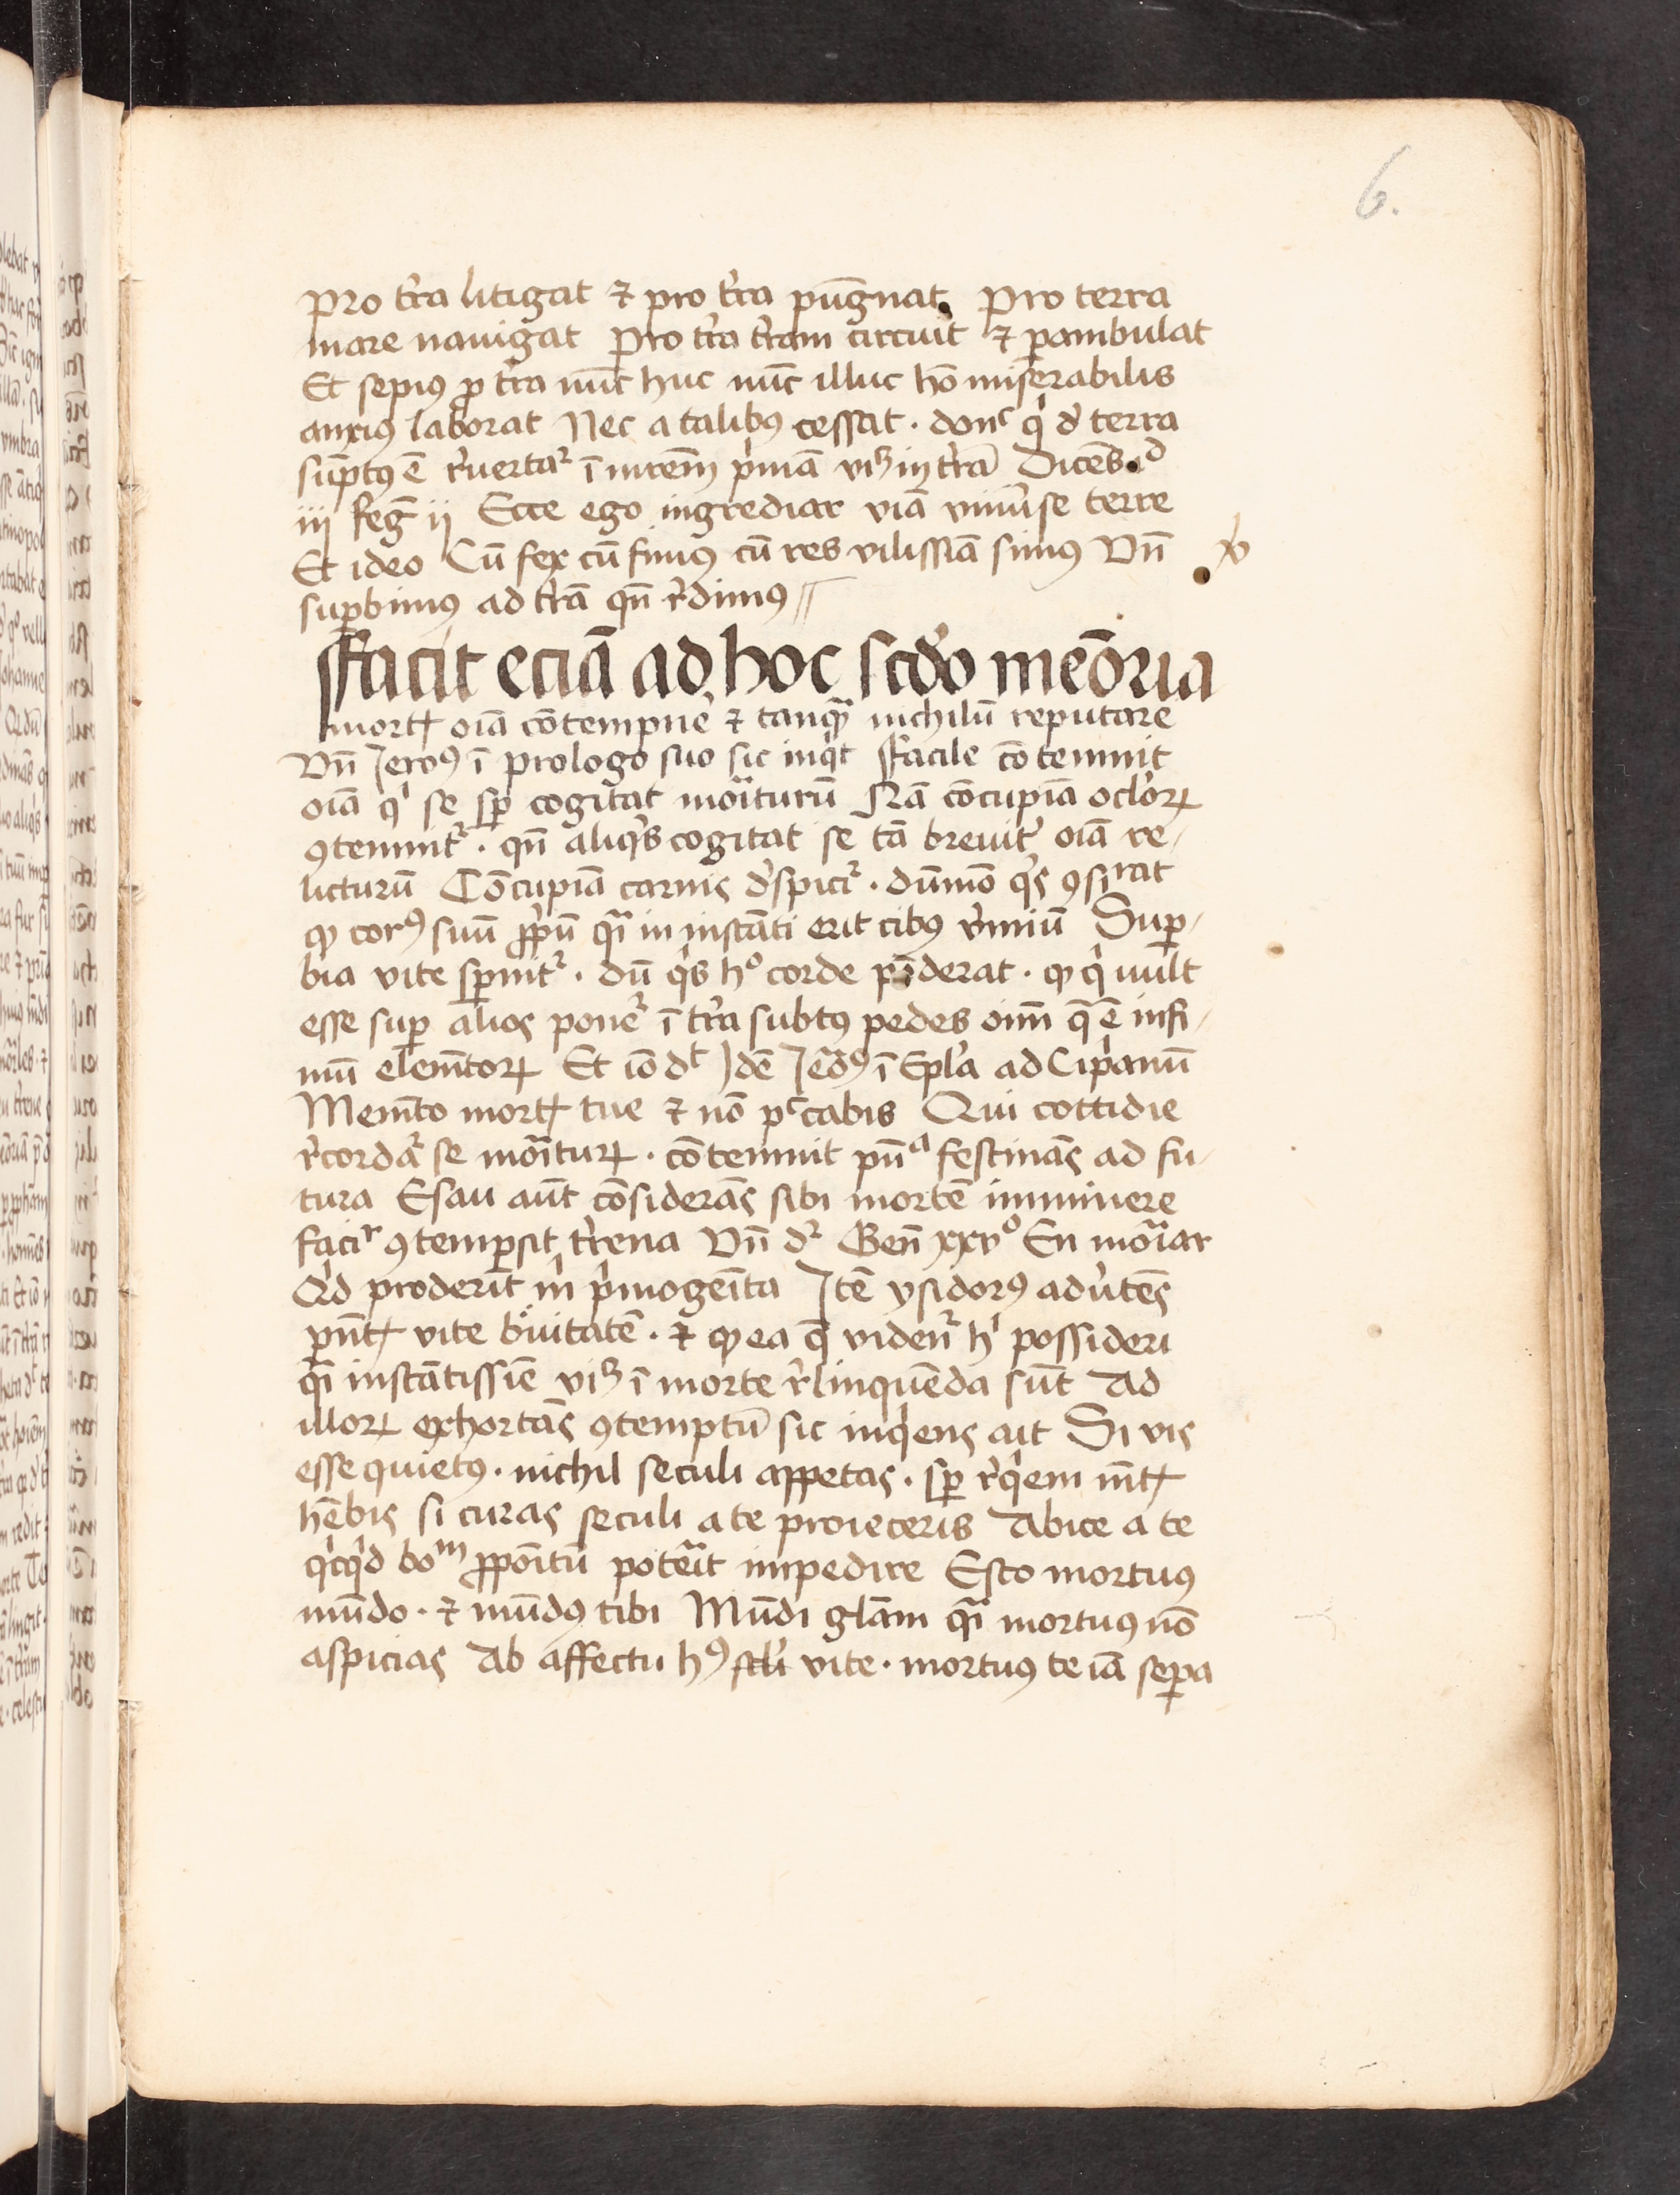 6.
Pro tr̄a litigat ⁊ pro tr̄a pūgnat. Pro terra
mare nauigat Pro tr̄a tr̄am circuit ⁊ ꝑambulat
Et sepiꝰ ꝓ tr̄a nūc huc nūc illuc hō miserabilis
anxiꝰ laborat Nec a talibꝰ cessat · donͨ qͥ d̓ terra
sūptꝰ ē r̓uertaͬ ī p̓mā in tr̄a Dicēs
iij Reḡ ij Ecce ego ingrediar viā vniu̓se terre
Et ideo Cū fex cū fimꝰ cū res vilissīa simꝰ Vn̄
suꝑbimꝰ ad tr̄ā qn̄ r̓dimꝰ
Facit eciā ad hoc scd̓o mēoria
mortꝭ oīa cōtempne̓ ⁊ tanqᷓ nichilū reputare
Vn̄ Jeroꝰ ī prologo suo sic inqͥt Facile cōtemnit
oīa qͥ se sꝑ cogitat moͥiturū Nā cōcupīa oclo̓ꝝ
ꝯtemnitͬ · qn̄ aliqͥs cogitat se tā breuit̓ oīa re-
licturū Cōcupīa carnis d̓spiciͬ · dūmō qͥs ꝯsi̓at
ꝙ corꝰ suū ꝓpͥū qᷓ in instāti erit cibꝰ v̓miū Suꝑ-
bia vite sꝑnitͬ · dū qͥs hͦ corde pōderat · ꝙ qͥ uult
esse suꝑ alios poneͬ ī tr̄a subtꝰ pedes oīm q̄ ē infi-
mū elemētoꝝ Et iō dͭ Jdē Jeroꝰ ī Epl̓a ad Cip̓anū
Memēto mortꝭ tue ⁊ nō pͨcabis Qui cottidie
r̓cordaͬ se moͥituꝝ · cōtemnit pn̄ͣ festinās ad fu-
tura Esau aūt cōsiderās sibi mortē imminere
faciͬ ꝯtempsit tr̓rena Vn̄ dͬ Gen̄ xxvͦ En moͥiar
Qͥd proderūt m̓ pͥmogeīta Jtē ysidorꝰ adu̓tēs
pn̄tꝭ vite b̓uitatē · ⁊ ꝙ ea q̄ videnͬ hͥ possideri
qᷓ instātissīe ī morte r̓linquēda sūt Ad
illoꝝ exhortās ꝯtemptū sic inqͥens ait Si vis
esse quietꝰ · nichil seculi appetas · sꝑ r̓qͥem mn̄tꝭ
hēbis si curas seculi a te proieceris Abice a te
qͥcqͥd boͫ ꝓpoītū potēͥt impedire Esto mortuꝰ
mūdo · ⁊ mūdꝰ tibi Mūdi gl̄am qᷓ mortuꝰ nō
aspicias Ab affectu hꝰ scl̓i vite · mortuꝰ te iā seꝑa